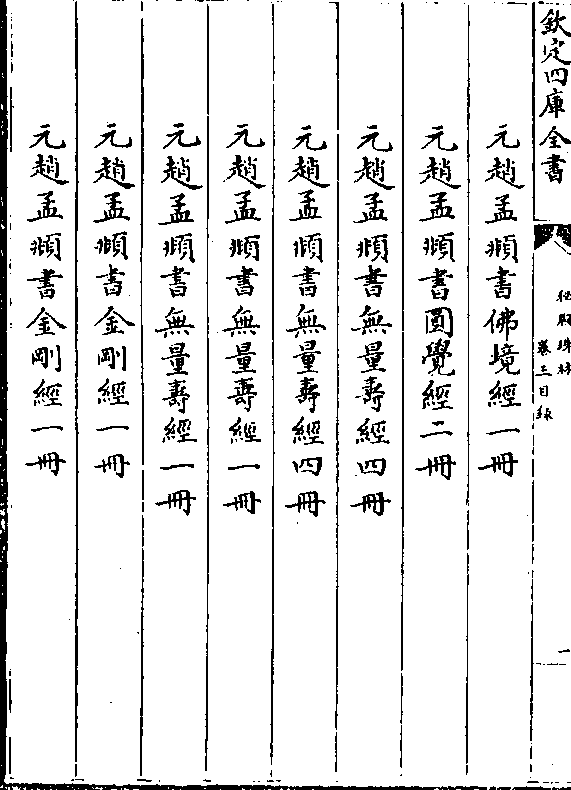 欽定四庫全書
秘殿珠林
卷三目錄
一
元趙孟頫書佛境經一冊
元趙孟頫書圓覺經二冊
元趙孟頫書無量壽經四冊
元趙孟頫書無量壽經四冊
元趙孟頫書無量壽經一冊
元趙孟頫書無量壽經一冊
元趙孟頫書金剛經一冊
元趙孟頫書金剛經一冊